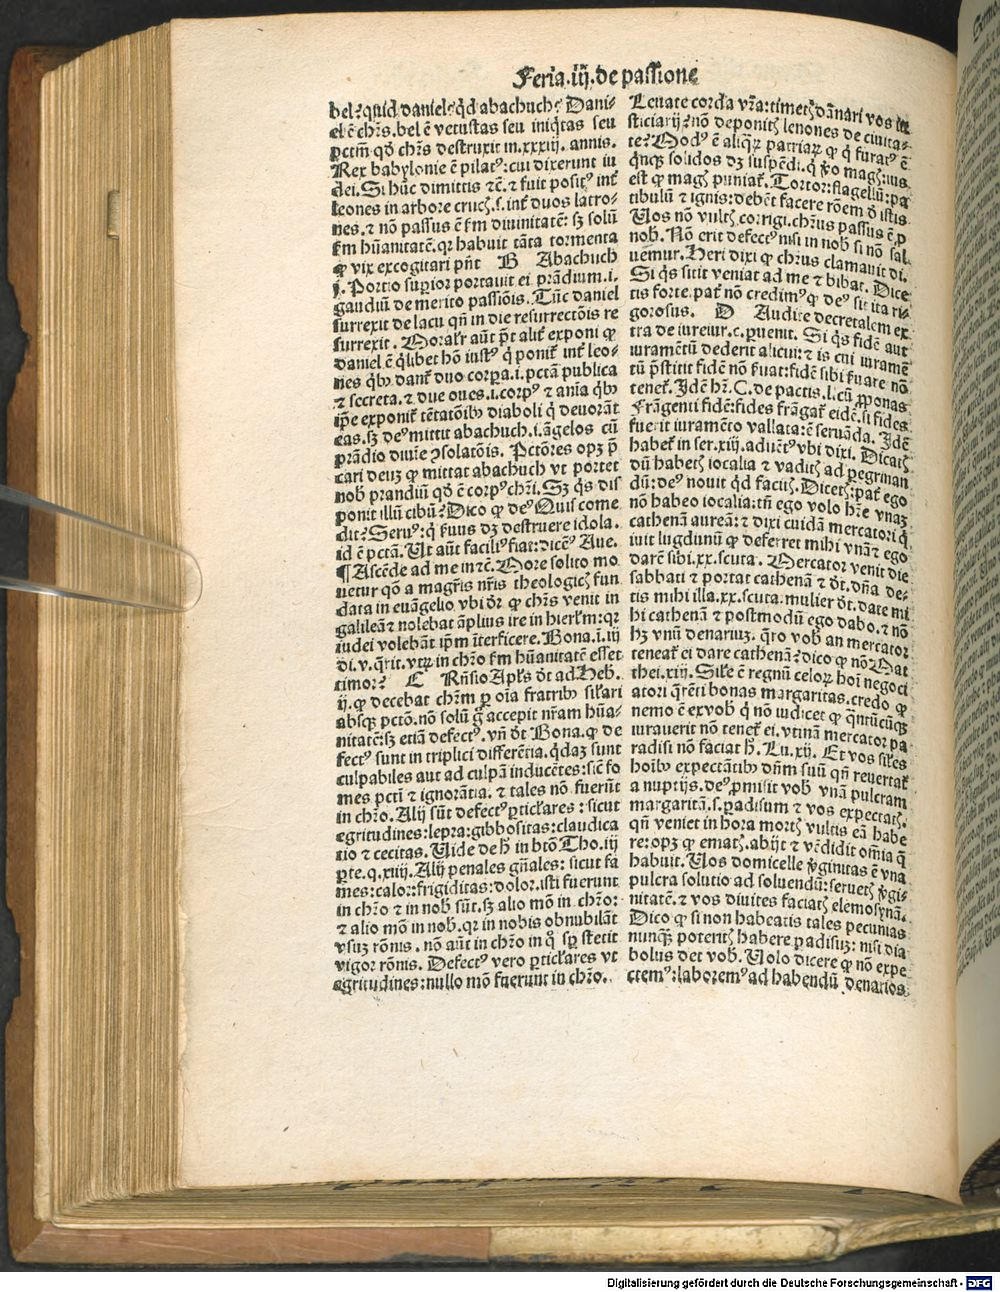 Feria.iij.de passione
bel?quid daniel?qd abachuch? Dani-
el ē chr̄s.bel ē vetustas seu iniq̇tas seu
pctm̄ qd̓ chr̄s destruxit in.xxxiij. annis.
Rex babylonie ē pilatꝰ:cui dixerunt iu
dei.Si hūc dimittis ⁊c̄.⁊ fuit positꝰ int̓
leones in arbore cruc̨.s.int̓ duos latro-
nes.⁊ nō passus ē s̓m diuinitatē: sꝫ solū
s̓m hūanitatē.qꝛ habuit tāta tormenta
ꝙ vix excogitari pn̄t B Abachuch
j. Portio supior portauit ei prādium.i.
gaudiū de merito passiōis. Tūc daniel
surrexit de lacu qn̄ in die resurrectōis re
surrexit. Moralr̓ aūt pt̄ alit̓ exponi ꝙ
daniel ē q̇libet hō iustꝰ q̇ ponit̓ int̓ leo-
nes qb̓ dant̓ duo corpa.i.pctā publica
⁊ secreta.⁊ due oues.i.corpꝰ ⁊ aniā qb̓
ipe exponit̓ tētatōib̓ diaboli q̇ deuorāt
eas.sꝫ deꝰ mittit abachuch.i.āgelos cū
prādio diuīe ꝯsolatōis. Pctōres opꝫ p̄
cari deuꝫ ꝙ mittat abachuch vt portet
nob̓ prandiū qd̓ ē corpꝰ chr̄i. Sꝫ q̇s dis
ponit illū cibū? Dico ꝙ deꝰ Quis come
dit? Seruꝰ:q̇ s̓uus dꝫ destruere idola.
id ē pctā. Ut aūt faciliꝰ fiat:dicēꝰ Aue.
¶ Ascēde ad me in ⁊c̄. More solito mo
uetur qō a magr̄is nr̄is theologic̨ fun
data in euāgelio vbi d̓r ꝙ chr̄s venit in
galileā ⁊ nolebat āplius ire in hierl̄m:qꝛ
iudei volebāt ip̄m īterficere. Bona.ī.iij
di.v.q̄rit.vtꝝ in chr̄o s̓m hūanitatē esset
timor? C Rn̄sio Apl̄s d̓t ad Heb.
ij.ꝙ decebat chr̄m ꝑ oīa fratrib̓ sil̄ari
absqꝫ pctō.nō solū g̓ accepit nr̄am hūa-
nitatē:sꝫ etiā defectꝰ.vn̄ d̓t Bona.ꝙ de
fectꝰ sunt in triplici differētia.q̇daꝫ sunt
culpabiles aut ad culpā inducētes:sic̄ fo
mes pcti ⁊ ignorātia. ⁊ tales nō fuerūt
in chr̄o. Alij sūt defectꝰ ꝑticl̄ares : sicut
egritudines:lepra:gibbositas:claudica
tio ⁊ cecitas. Uide de h̓ in btō Tho.iij
ꝑte.q.xiiij. Alij penales gn̄ales: sicut fa
mes:calor:frigiditas:dolor.isti fuerunt
in chr̄o ⁊ in nob̓ sūt.sꝫ alio mō in chr̄o:
⁊ alio mō in nob̓.qꝛ in nobis obnubilāt
vsuꝫ rōnis. nō aūt in chr̄o in q̊ sp̄ stetit
vigor rōnis. Defectꝰ vero ꝑticl̄ares vt
egritudines:nullo mō fuerunt in chr̄o.
Leuate corda vr̄a:timet̨ dānari vos
sticiarij? nō deponit̨ lenones de ciuita-
te? Modꝰ ē aliq̇ꝝ patriaꝝ ꝙ q̇ furatꝰ ē
q̇nqꝫ solidos dꝫ suspēdi.q̇ v̓o mag̨:ius
est ꝙ mag̨ puniat̓. Tortor:flagellū:pa
tibulū ⁊ ignis:debēt facere rōem d̓ istis
Uos nō vult̨ corrigi.chr̄us passus ē ꝓ
nob̓. Nō erit defectꝰ nisi in nob̓ si nō sal
uemur. Heri dixi ꝙ chr̄us clamauit di.
Si q̇s sitit veniat ad me ⁊ bibat. Dice
tis forte.pat̓ nō credimꝰ ꝙ deꝰ sit ita ri-
gorosus. D Audite decretalem ex
tra de iureiur.c.ꝑuenit. Si q̇s fidē aut
iuramētū dederit alicui:⁊ is cui iuramē
tū p̄stitit fidē nō s̓uat:fidē sibi s̓uare nō
tenet̓. Idē hr̄.C.de pactis.l.cū ꝓponas
Frāgenti fidē:fides frāgat̓ eidē.si fides
fuerit iuramēto vallata:ē seruāda. Idē
habet̓ in ser.xiij.aduētꝰ vbi dixi. Dicat̨
dū habet̨ iocalia ⁊ vadit̨ ad ꝑegrinan
dū:deꝰ nouit qd̓ facit̨. Dicet̨:pat̓ ego
nō habeo iocalia:tn̄ ego volo hr̄e vnaꝫ
cathenā aureā:⁊ dixi cuidā mercatori q̇
iuit lugdunū ꝙ deferret mihi vnā ⁊ ego
darē sibi.xx.scuta. Mercator venit die
sabbati ⁊ portat cathenā ⁊ d̓t.dn̄a de-
tis mihi illa.xx.scuta.mulier d̓t.date mi
hi cathenā ⁊ postmodū ego dabo.⁊ nō
hꝫ vnū denariuꝫ. q̄ro vob̓ an mercator
teneat̓ ei dare cathenā? dico ꝙ nō Mat
thei.xiij. Sil̄e ē regnū celoꝝ hoī negoci
atori q̄rēti bonas margaritas.credo ꝙ
nemo ē ex vob̓ q̇ nō iudicet ꝙ q̄ntūcūqꝫ
iurauerit nō tenet̓ ei.vtinā mercator pa
radisi nō faciat h̓. Lu.xij. Et vos sil̄es
hoīb̓ expectātib̓ dn̄m suū qn̄ reuertat̓
a nuptijs.deꝰ ꝓmisit vob̓ vnā pulcram
margaritā.s.ꝑadisum ⁊ vos expectat̨.
qn̄ veniet in hora mort̨ vultis eā habe
re:opꝫ ꝙ emat̨.abijt ⁊ vēdidit om̄ia q̄
habuit. Uos domicelle v̓ginitas ē vna
pulcra solutio ad soluendū:seruet̨ v̓gi-
nitatē.⁊ vos diuites faciat̨ elemosynā.
Dico ꝙ si non habeatis tales pecunias
nunqꝫ poterit̨ habere ꝑadisuꝫ: nisi dia
bolus det vob̓. Uolo dicere ꝙ nō expe
ctemꝰ:laboremꝰ ad habendū denarios
Digitalisierung gefördert durch die Deutsche Forschungsgemeinschaft - DFG